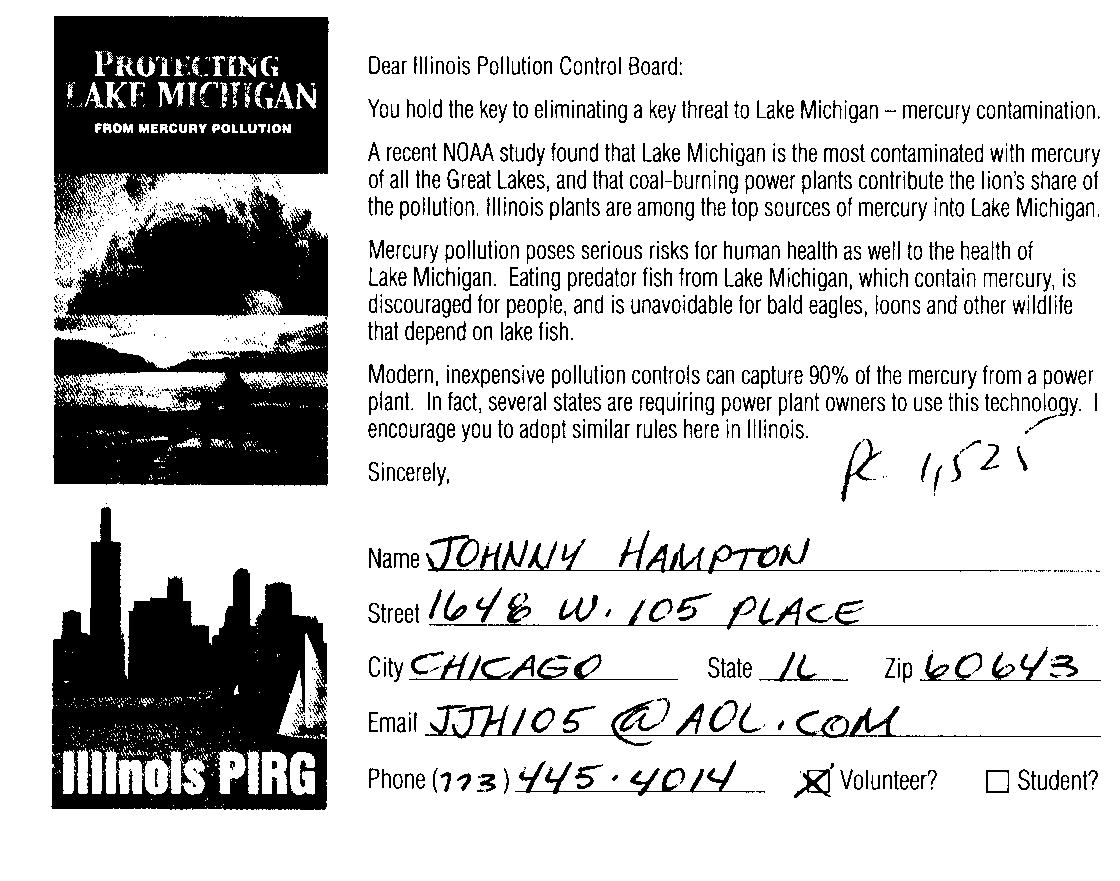 PROTECTING
LAKE MICHIGAN
FROM MERCURY POLLUTION
Dear Illinois Pollution Control Board:
You hold the key to eliminating a key threat to Lake Michigan – mercury contamination.
A recent NOAA study found that Lake Michigan is the most contaminated with mercury
of all the Great Lakes, and that coal-burning power plants contribute the lion's share of
the pollution. Illinois plants are among the top sources of mercury into Lake Michigan.
Mercury pollution poses serious risks for human health as well to the health of
Lake Michigan. Eating predator fish from Lake Michigan, which contain mercury, is
discouraged for people, and is unavoidable for bald eagles, loons and other wildlife
that depend on lake fish.
Modern, inexpensive pollution controls can capture 90% of the mercury from a power
plant. In fact, several states are requiring power plant owners to use this technology. I
encourage you to adopt similar rules here in Illinois.
Sincerely,
1,525
Name JOHNNY HAMPTON
Street 1648 W. 105 PLACE
City CHICAGO State IL Zip 60643
Email JJH105@AOL.COM
Phone (773) 445.4014 Volunteer? Student?
Illinois PIRG